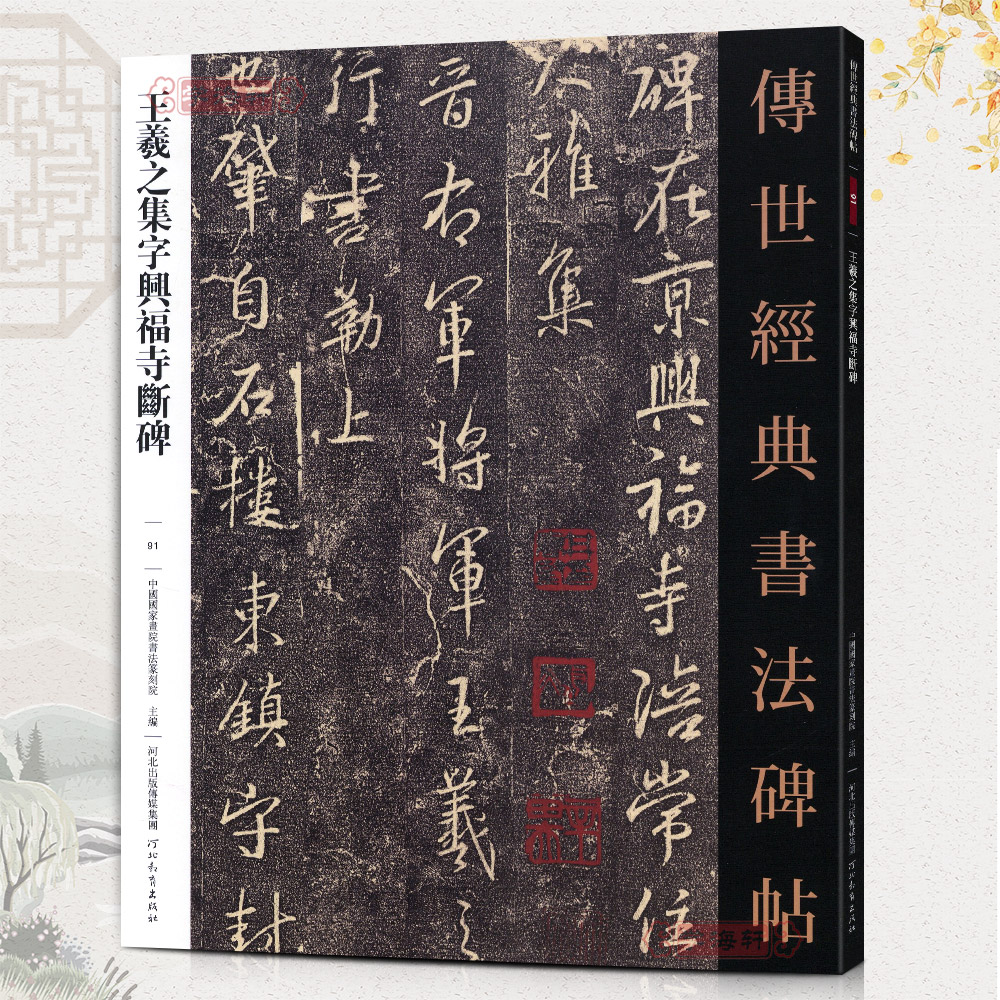 傳世經典書法碑帖
91
王羲之集字興福寺斷碑
中國國家畫院書法篆刻院 主編
河北出版傳媒集團
河北教育出版社
傳世經典書法碑帖
碑在京興福寺陪常住
大雅集
晉右軍將軍王羲之
行書勒上
也肇自石樓東鎮守封
王羲之集字興福寺斷碑
91
中國國家畫院書法篆刻院 主編
河北出版傳媒集團
河北教育出版社
每轩